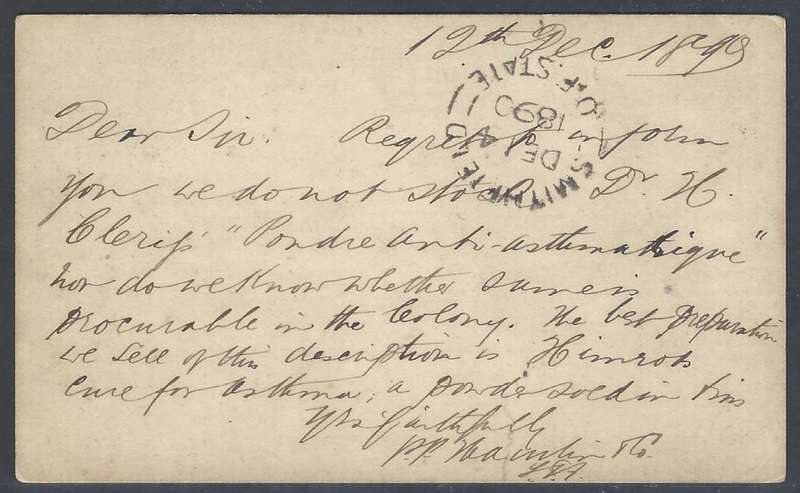 12th Dec. 1890
SMITHFIELD O.F. STATE
DE 14 1890
Dear Sir. Regret to inform
you we do not stock Dr. H.
Clery's "Poudre Anti-asthmatique"
nor do we know whether same is
procurable in the Colony. The best preparation
we sell of this description is Himrods
cure for asthma, a powder sold in tins
Yrs faithfully
pp